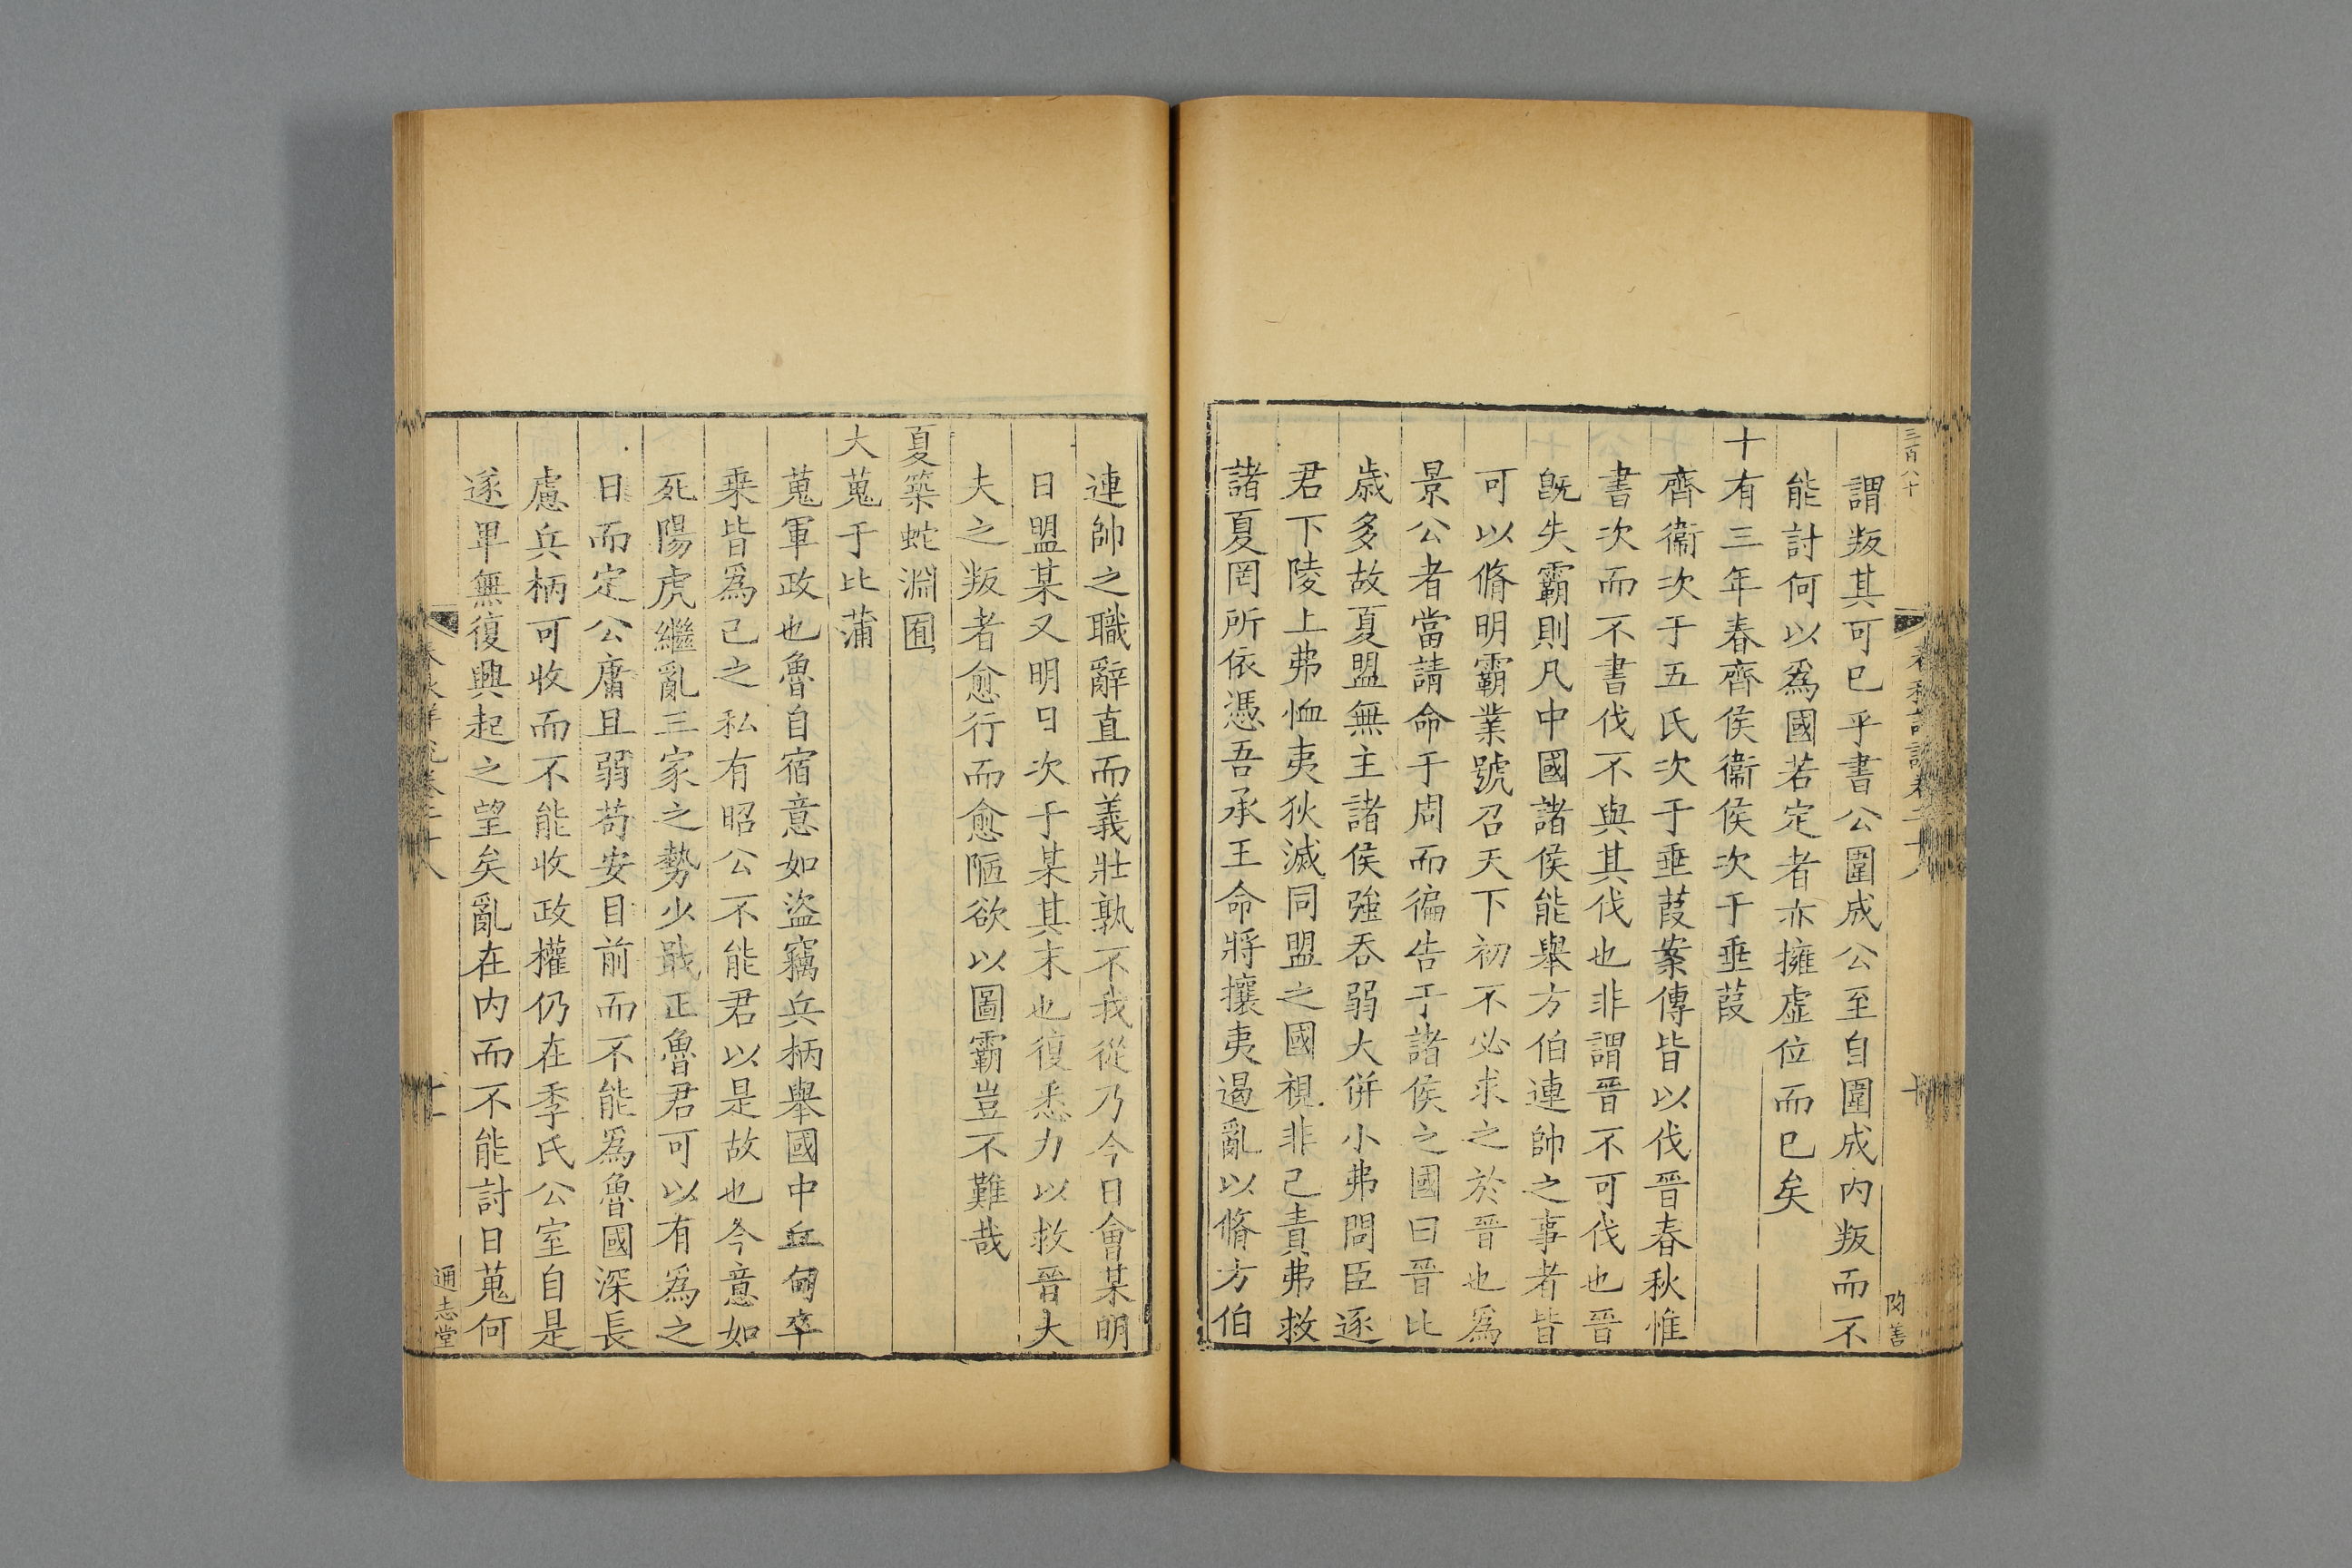 三百八十
春秋詳說卷二十八
十
閔善
謂叛其可已乎書公圍成公至自圍成内叛而不
能討何以爲國若定者亦擁虛位而已矣
十有三年春齊侯衞侯次于垂葭
齊衞次于五氏次于垂葭案傳皆以伐晉春秋惟
書次而不書伐不與其伐也非謂晉不可伐也晉
旣失霸則凡中國諸侯能舉方伯連帥之事者皆
可以脩明霸業號召天下初不必求之於晉也爲
景公者當請命于周而徧告于諸侯之國曰晉比
歲多故夏盟無主諸侯強吞弱大併小弗問臣逐
君下陵上弗恤夷狄滅同盟之國視非己責弗救
諸夏罔所依憑吾承王命將攘夷遏亂以脩方伯
連帥之職辭直而義壯孰不我從乃今日會某明
日盟某又明日次于某其末也復悉力以救晉大
夫之叛者愈行而愈陋欲以圖霸豈不難哉
夏築蛇淵囿
大蒐于比蒲
蒐軍政也魯自宿意如盜竊兵柄舉國中丘甸卒
乗皆爲己之私有昭公不能君以是故也今意如
死陽虎繼亂三家之勢少戢正魯君可以有爲之
日而定公庸且弱苟安目前而不能爲魯國深長
慮兵柄可收而不能收政權仍在季氏公室自是
遂卑無復興起之望矣亂在内而不能討日蒐何
十一
通志堂